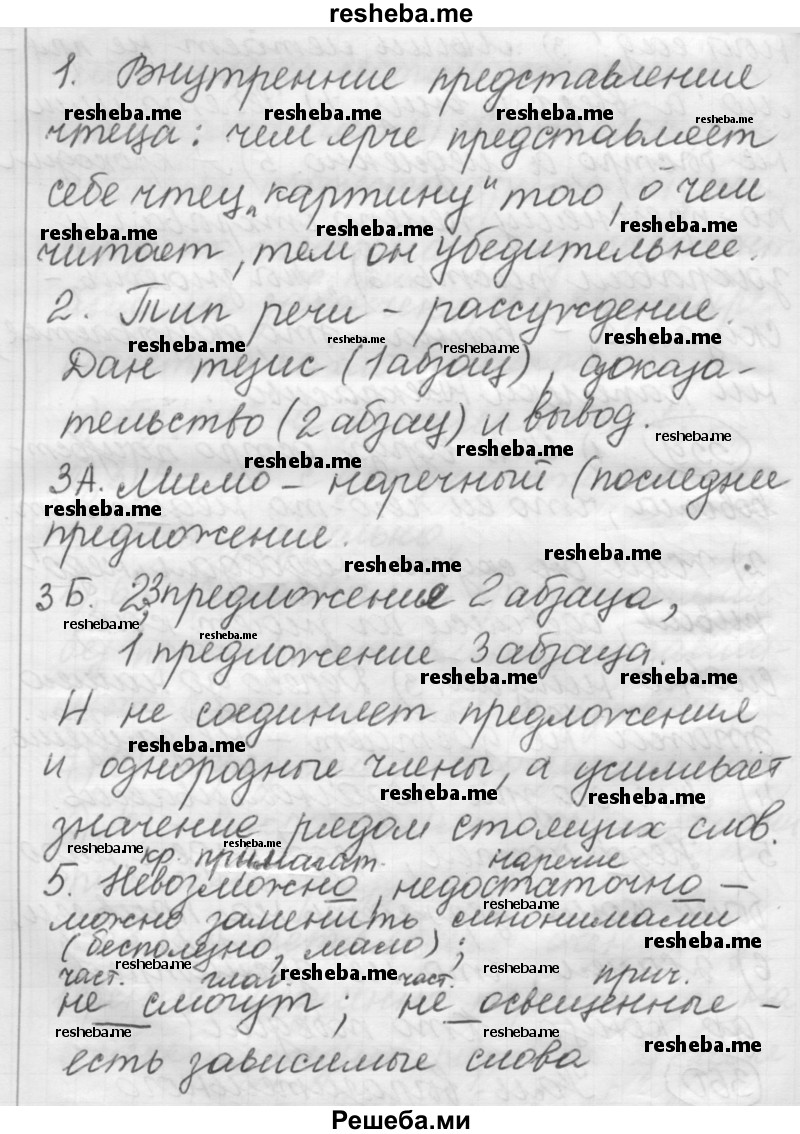 resheba.me
1. Внутренние представление
чтеца: чем ярче представляет
себе чтец „картину" того, о чем
читает, тем он убедительнее.
2. Тип речи – рассуждение.
Дан тезис (1 абзац), доказа-
тельство (2 абзац) и вывод.
3А. Мимо – наречный (последнее
предложение.
3Б. 2,3 предложение 2 абзаца,
1 предложение 3 абзаца.
И не соединяет предложения
и однородные члены, а усиливает
значение рядом стоящих слов.
кр. прилагат. наречие
5. Невозможно, недостаточно –
можно заменить синонимами
(бесполезно, мало);
част. глаг. част. прич.
не смогут; не освещенные –
есть зависимые слова
Решеба.ми